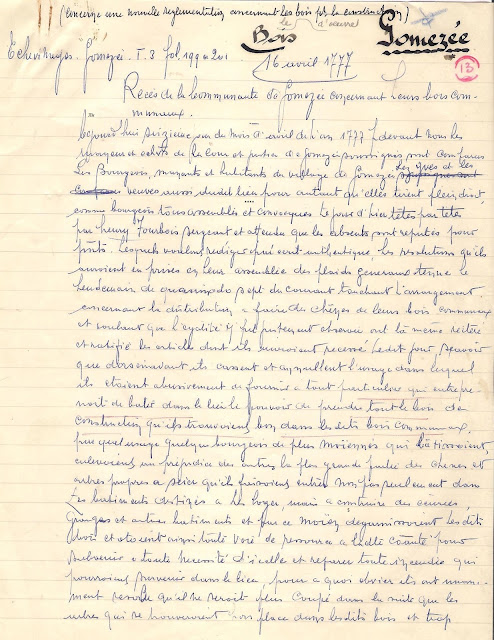 (Concerne une nouvelle réglementation concernant les bois pr la construction)
le (d'œuvre)
Bois Gomezée
Echevinages. Gomezée. T. 3 fol 199 a 201
16 avril 1777
13
Recès de la Communauté de Gomezée concernant leurs bois com-
munaux.
Cejourd'hui seizieme jour du mois d'avril de l'an 1777 pdevant nous les
mayeur et echvs de la cour et justice de Gomezée soussignés sont comparus
Les Bourgeois, manants et habitants du village de Gomezée Les yves et les
veuves aussi dudit lieu pour autant qu'elles tirent plein droit
comme bourgeois tous assemblés et convocqués le jour d'hier têtes par têtes
par henry Tourbois sergeant et attendu que les absents sont reputés pour
pnts. Lesquels voulant rediger par écrit authentique les resolutions qu'ils
auroient eu prises en leur assemblée des plaids generaux tenue le
lendemain de quasimodo sept du courant touchant l'arrangement
concernant la distribution a faire des chesnes de leurs bois communaux
et souhaitant que l'eqdité y fut justement observée ont le même reitéré
et ratifié les articles dont ils auroient recessé ledit jour, sçavoir
que doresnavant ils cassent et annullent l'usage dans lequel
ils étoient abusivement de fournir a tout particulier qui entrepre-
noit de batir dans le lieu le pouvoir de prendre tout le bois de
construction qu'ils trouvoient bon dans les dits bois communaux,
par quel usage quelque bourgeois des plus moiennés qui batissoient,
enlevoient au préjudice des autres la plus grande partie des chesnes et
arbres propres a scier qu'ils faisoient entrer non pas seulement dans
les batiments destinés a les loger, mais a construire des écuries,
Granges et autres batiments et par ce moien degarnissoient les dits
bois et otoient ainsi toute voie de ressource a ladite coauté pour
subvenir a toute necessité d'icelle et reparer toute incendie qui
pourroient survenir dans le lieu, pour a quoi obvier ils ont unanim-
ment resolu qu'il ne seroit plus coupé dans la suite que les
arbres qui se trouveroient hors place dans les dits bois et trop